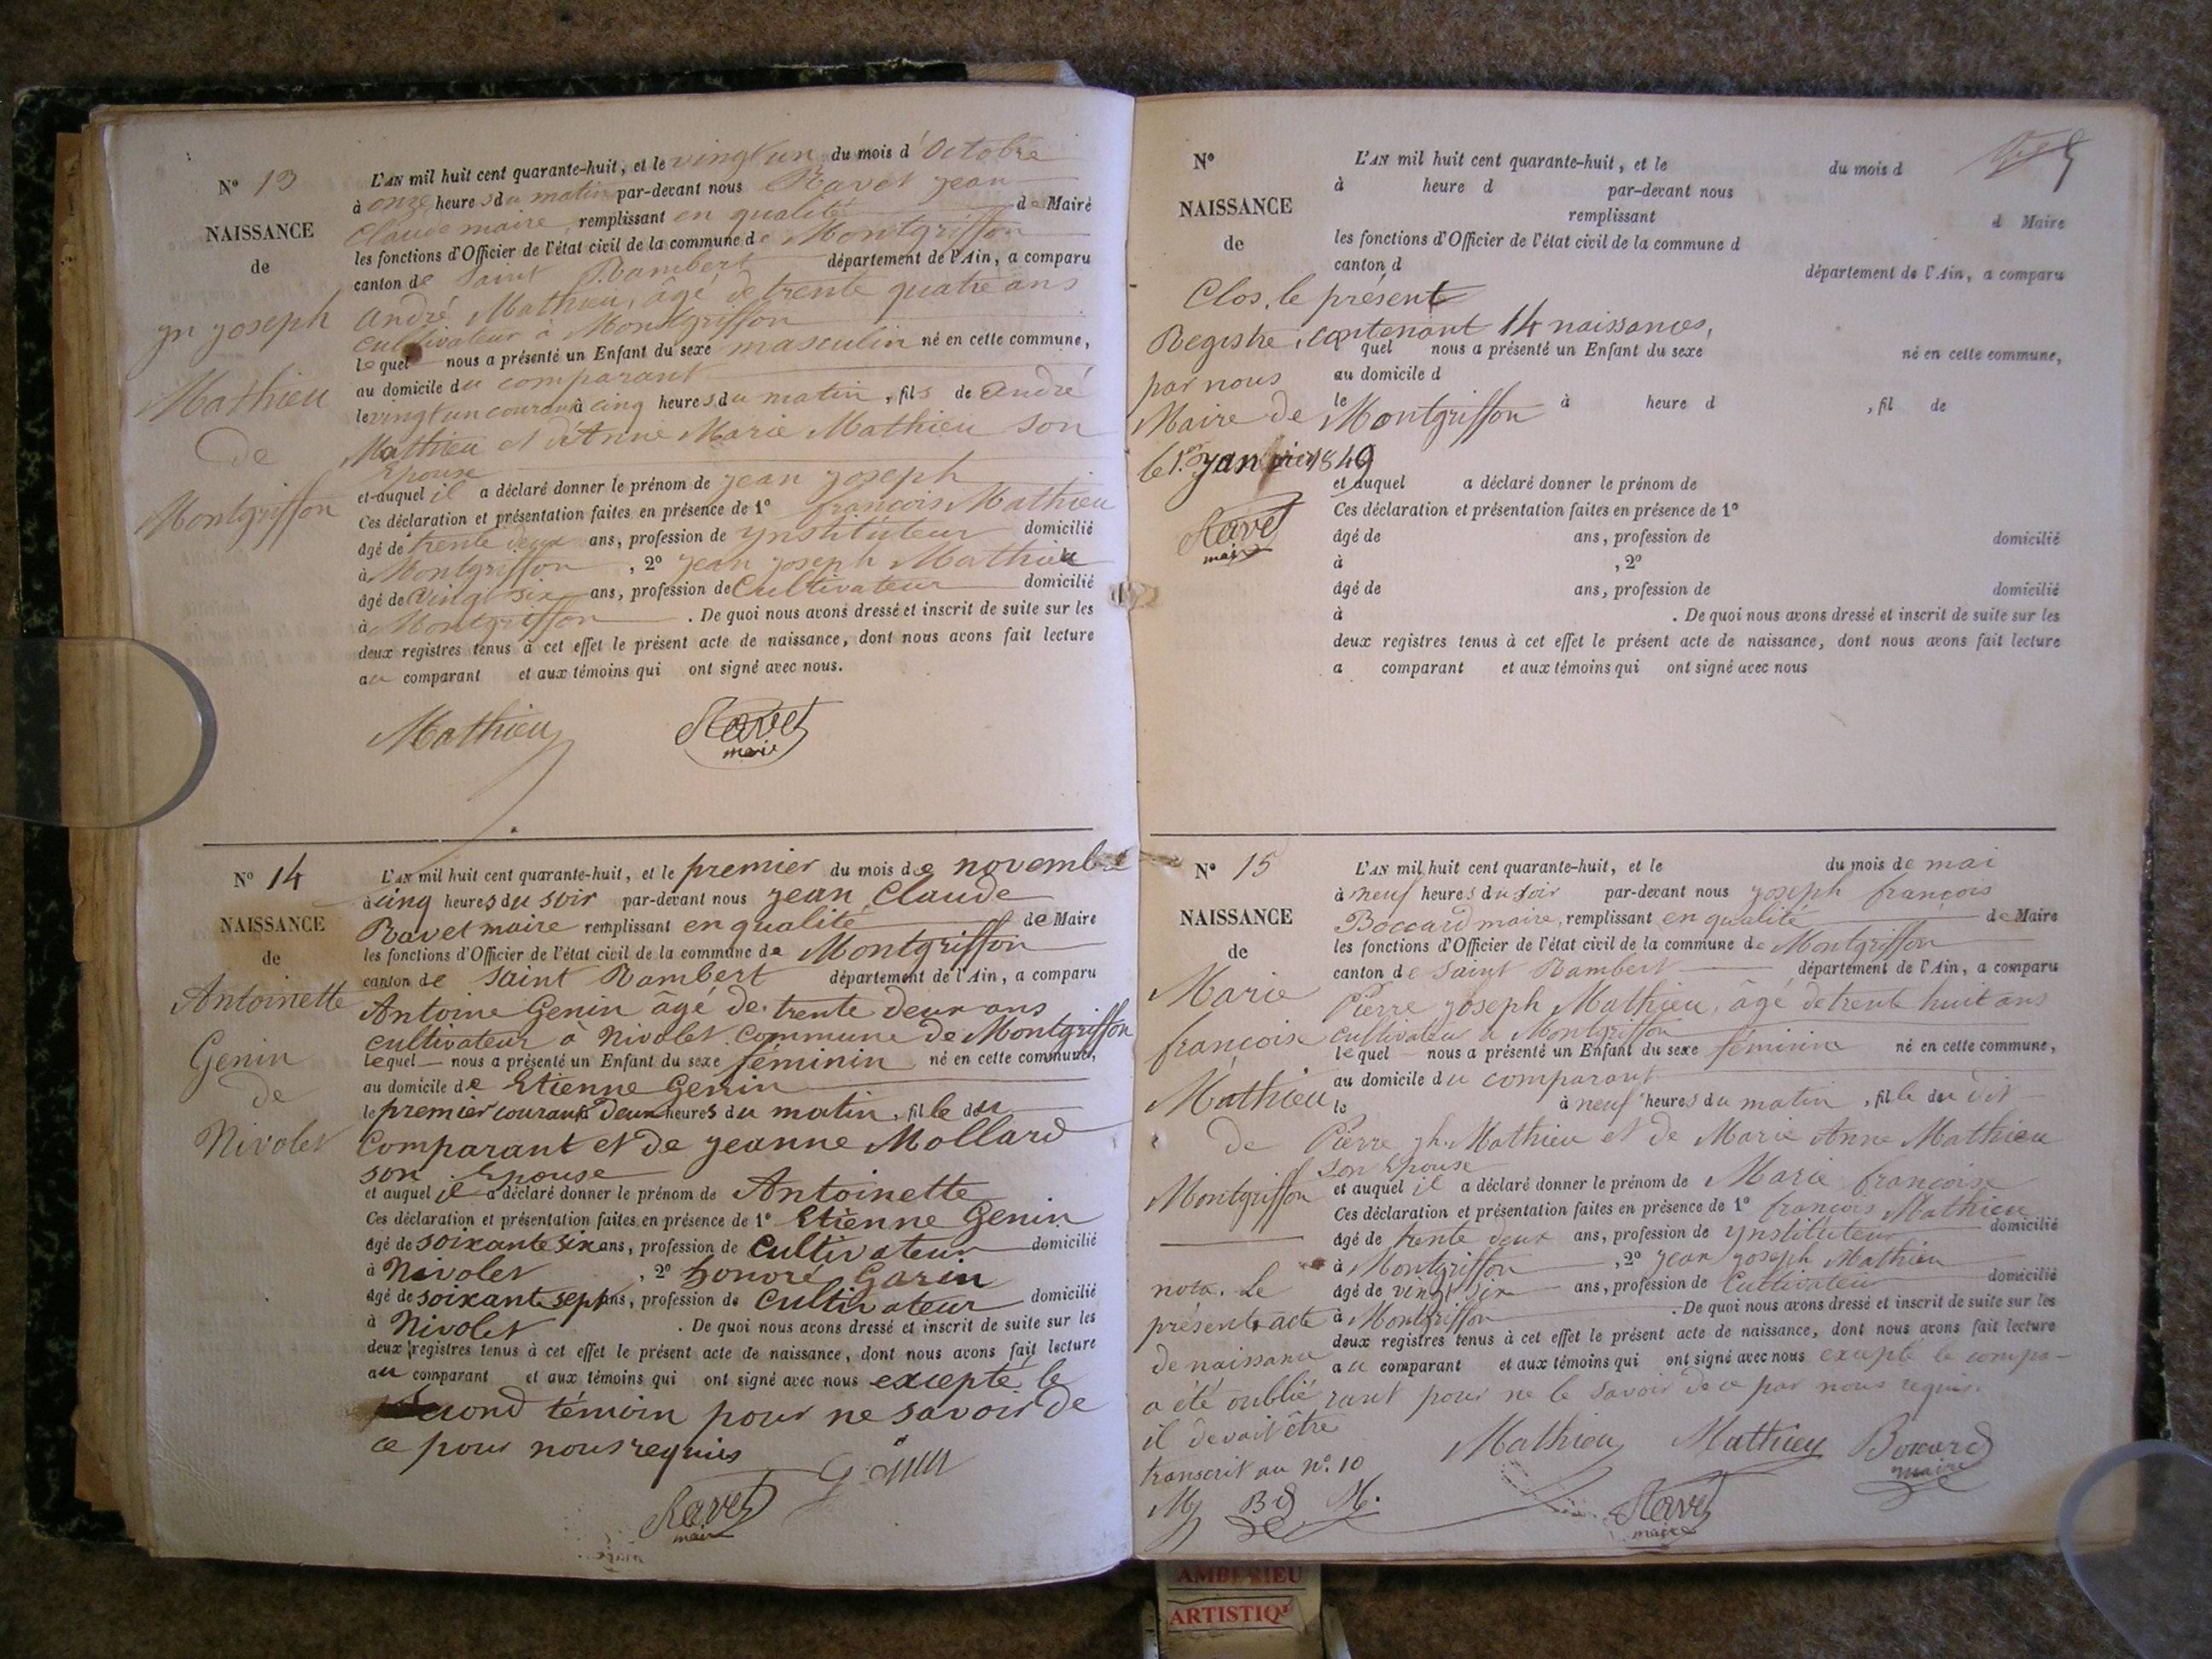 N° 13
NAISSANCE
de
jn joseph
Mathieu
de
Montgriffon
L'AN mil huit cent quarante-huit, et le vingt un du mois d'Octobre
à onze heures du matin par-devant nous Ravet jean
Claude maire, remplissant en qualité de Maire
les fonctions d'Officier de l'état civil de la commune de Montgriffon
canton de Saint Rambert département de l'Ain, a comparu
André Mathieu, âgé de trente quatre ans
cultivateur à Montgriffon
lequel nous a présenté un Enfant du sexe masculin né en cette commune,
au domicile du comparant
le vingt un courant à cinq heures du matin, fils de André
Mathieu et d'Anne Marie Mathieu son
Epouse
et auquel il a déclaré donner le prénom de jean joseph
Ces déclaration et présentation faites en présence de 1° françois Mathieu
âgé de trente deux ans, profession de ynstituteur domicilié
à Montgriffon, 2° jean joseph Mathieu
âgé de vingt six ans, profession de Cultivateur domicilié
à Montgriffon. De quoi nous avons dressé et inscrit de suite sur les
deux registres tenus à cet effet le présent acte de naissance, dont nous avons fait lecture
au comparant et aux témoins qui ont signé avec nous.
Mathieu Ravet
maire
N° 14
NAISSANCE
de
Antoinette
Genin
de
Nivolet
L'AN mil huit cent quarante-huit, et le premier du mois de novembre
à cinq heures du soir par-devant nous jean Claude
Ravet maire remplissant en qualité de Maire
les fonctions d'Officier de l'état civil de la commune de Montgriffon
canton de Saint Rambert département de l'Ain, a comparu
Antoine Genin âgé de trente deux ans
cultivateur à Nivolet commune de Montgriffon
lequel nous a présenté un Enfant du sexe féminin né en cette commune,
au domicile de Etienne Genin
le premier courant à Deux heures du matin, fille du
Comparant et de jeanne Mollard
son Epouse
et auquel il a déclaré donner le prénom de Antoinette
Ces déclaration et présentation faites en présence de 1° Etienne Genin
âgé de soixante six ans, profession de Cultivateur domicilié
à Nivolet, 2° honoré Garin
âgé de soixante sept ans, profession de Cultivateur domicilié
à Nivolet. De quoi nous avons dressé et inscrit de suite sur les
deux registres tenus à cet effet le présent acte de naissance, dont nous avons fait lecture
au comparant et aux témoins qui ont signé avec nous excepté le
second témoin pour ne savoir de
ce pour nous requies
Genin
Ravet
maire
N°
NAISSANCE
de
L'AN mil huit cent quarante-huit, et le du mois d
à heure d par-devant nous
remplissant d Maire
les fonctions d'Officier de l'état civil de la commune d
canton d département de l'Ain, a comparu
Clos, le présent
Registre, contenant 14 naissances,
quel nous a présenté un Enfant du sexe né en cette commune,
par nous au domicile d
le à heure d , fil de
Maire de Montgriffon
le 1er janvier 1849
et auquel a déclaré donner le prénom de
Ces déclaration et présentation faites en présence de 1°
Ravet
maire
âgé de ans, profession de domicilié
à , 2°
âgé de ans, profession de domicilié
à . De quoi nous avons dressé et inscrit de suite sur les
deux registres tenus à cet effet le présent acte de naissance, dont nous avons fait lecture
a comparant et aux témoins qui ont signé avec nous
N° 15
NAISSANCE
de
Marie
françoise
Mathieu
de
Montgriffon
L'AN mil huit cent quarante-huit, et le du mois de mai
à neuf heures du soir par-devant nous joseph françois
Boccard maire, remplissant en qualité de Maire
les fonctions d'Officier de l'état civil de la commune de Montgriffon
canton de Saint Rambert département de l'Ain, a comparu
Pierre joseph Mathieu, âgé de trente huit ans
cultivateur à Montgriffon
lequel nous a présenté un Enfant du sexe féminin né en cette commune,
au domicile du comparant
le à neuf heures du matin, fille du dit
Pierre jh. Mathieu et de Marie Anne Mathieu
son Epouse
et auquel il a déclaré donner le prénom de Marie françoise
Ces déclaration et présentation faites en présence de 1° françois Mathieu
âgé de trente deux ans, profession de ynstituteur domicilié
à Montgriffon, 2° jean joseph Mathieu
âgé de vingt six ans, profession de Cultivateur domicilié
à Montgriffon. De quoi nous avons dressé et inscrit de suite sur les
deux registres tenus à cet effet le présent acte de naissance, dont nous avons fait lecture
au comparant et aux témoins qui ont signé avec nous excepté le compa-
rant pour ne le savoir de ce par nous requis.
nota. Le
présent acte
de naissance
a été oublié
il devait être
transcrit au n°. 10
M Bd M.
Mathieu Mathieu Boccard
maire
Ravet
maire
AMBERIEU
ARTISTIQ